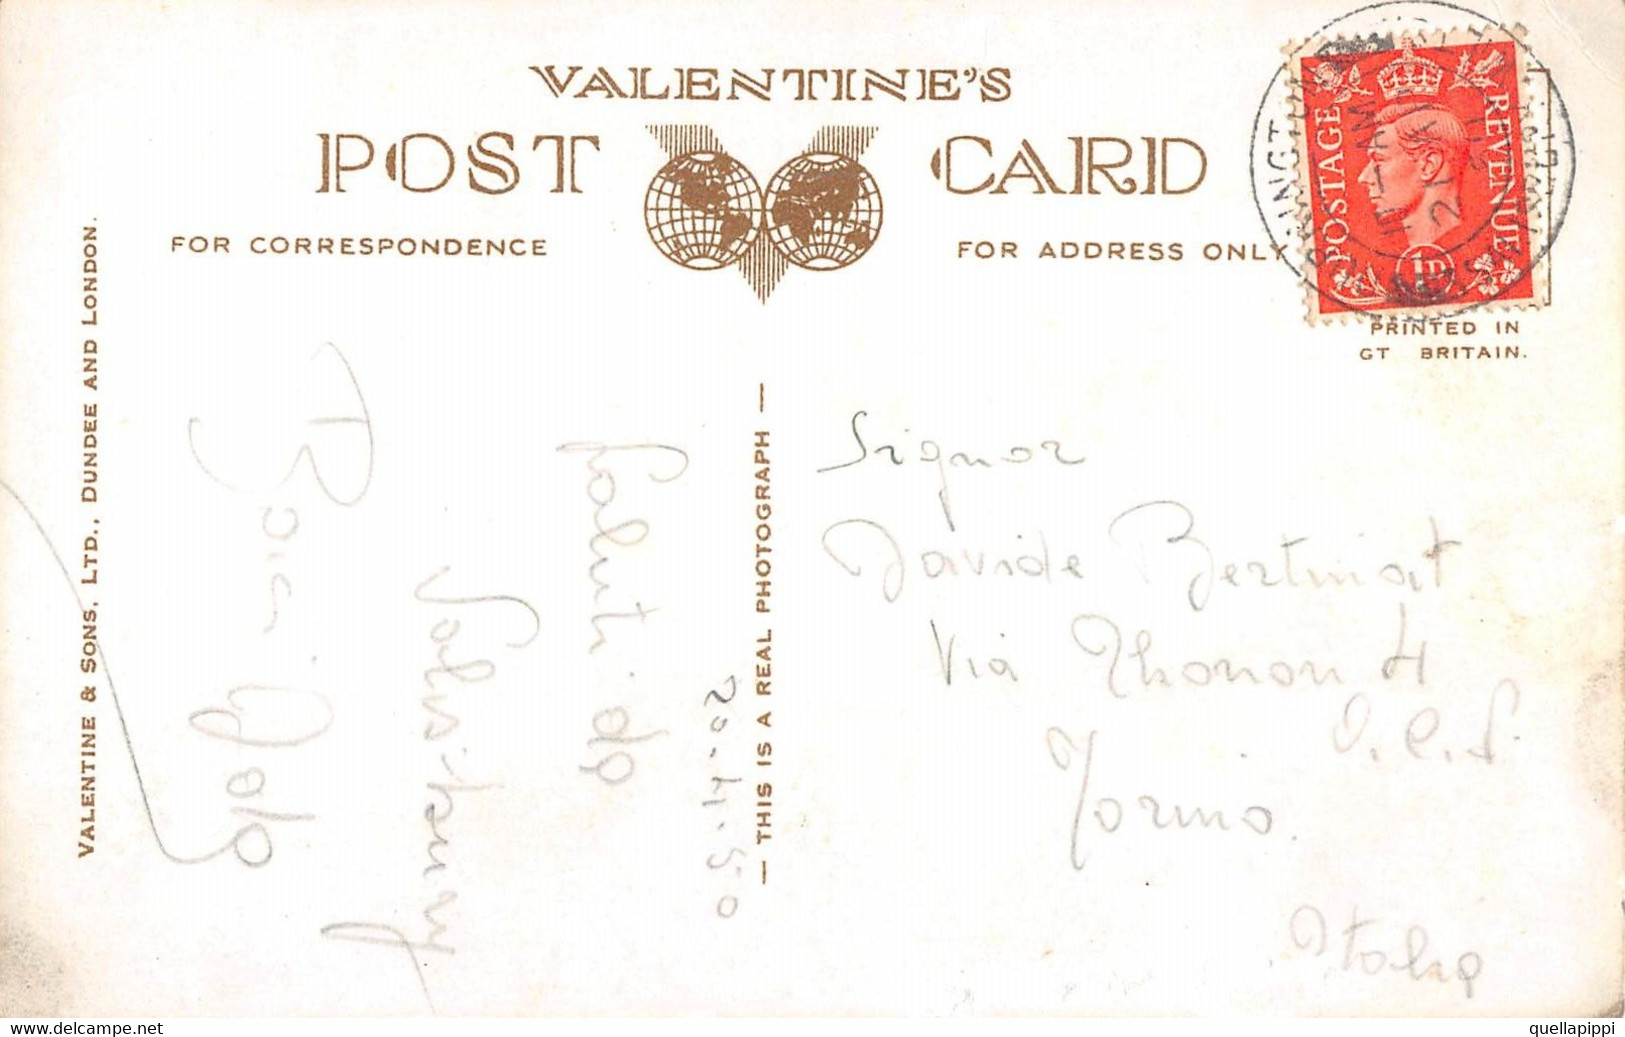 VALENTINE'S
POST CARD
FOR CORRESPONDENCE
FOR ADDRESS ONLY
POSTAGE REVENUE
1D
PRINTED IN
GT BRITAIN.
VALENTINE & SONS, LTD., DUNDEE AND LONDON.
— THIS IS A REAL PHOTOGRAPH —
20.4.50
Saluti da
Salisbury
Signor
Davide Bertinat
Via Thonon 4
Torino.
Italia
quellapippi